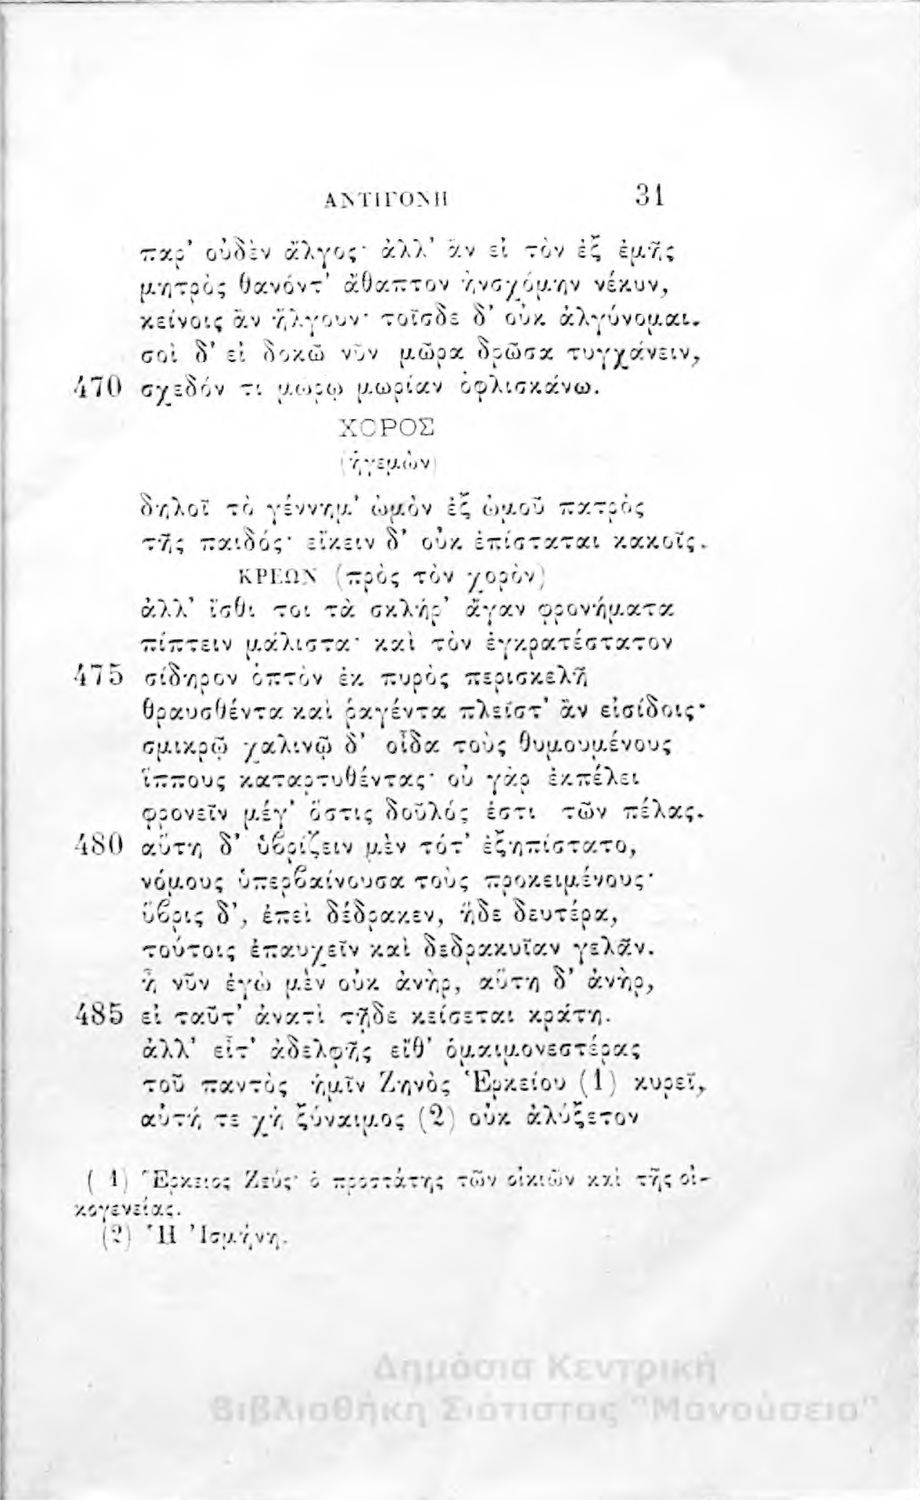 ΑΝΤΙΓΟΝΗ 31
παρ' οὐδὲν ἄλγος· ἀλλ' ἂν εἰ τὸν ἐξ ἐμῆς
μητρὸς θανόντ' ἄθαπτον ἠνσχόμην νέκυν,
κείνοις ἂν ἤλγουν· τοῖσδε δ' οὐκ ἀλγύνομαι.
σοὶ δ' εἰ δοκῶ νῦν μῶρα δρῶσα τυγχάνειν,
470 σχεδόν τι μώρῳ μωρίαν ὀφλισκάνω.
ΧΟΡΟΣ
(ἡγεμὼν)
δηλοῖ τὸ γέννημ' ὠμὸν ἐξ ὠμοῦ πατρὸς
τῆς παιδός· εἴκειν δ' οὐκ ἐπίσταται κακοῖς.
ΚΡΕΩΝ (πρὸς τὸν χορὸν)
ἀλλ' ἴσθι τοι τὰ σκλήρ' ἄγαν φρονήματα
πίπτειν μάλιστα· καὶ τὸν ἐγκρατέστατον
475 σίδηρον ὀπτὸν ἐκ πυρὸς περισκελῆ
θραυσθέντα καὶ ῥαγέντα πλεῖστ' ἂν εἰσίδοις·
σμικρῷ χαλινῷ δ' οἶδα τοὺς θυμουμένους
ἵππους καταρτυθέντας· οὐ γὰρ ἐκπέλει
φρονεῖν μέγ' ὅστις δοῦλός ἐστι τῶν πέλας.
480 αὕτη δ' ὑβρίζειν μὲν τότ' ἐξηπίστατο,
νόμους ὑπερβαίνουσα τοὺς προκειμένους·
ὕβρις δ', ἐπεὶ δέδρακεν, ἥδε δευτέρα,
τούτοις ἐπαυχεῖν καὶ δεδρακυῖαν γελᾶν.
ἦ νῦν ἐγὼ μὲν οὐκ ἀνὴρ, αὕτη δ' ἀνὴρ,
485 εἰ ταῦτ' ἀνατὶ τῇδε κείσεται κράτη.
ἀλλ' εἴτ' ἀδελφῆς εἴθ' ὁμαιμονεστέρας
τοῦ παντὸς ἡμῖν Ζηνὸς Ἑρκείου (1) κυρεῖ,
αὐτή τε χἡ ξύναιμος (2) οὐκ ἀλύξετον
(1) Ἕρκειος Ζεύς· ὁ προστάτης τῶν οἰκιῶν καὶ τῆς οἰ-
κογενείας.
(2) Ἡ Ἰσμήνη.
Δημόσια Κεντρική
Βιβλιοθήκη Σιάτιστας "Μανούσεια"